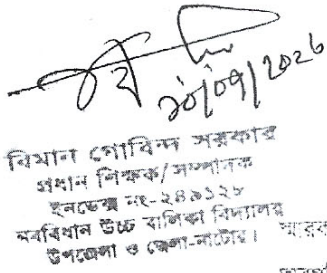 ২০/০৭/২০২৬
বিমান গোবিন্দ সরকার
প্রধান শিক্ষক/সম্পাদক
ইনডেক্স নং-২৪৯১২৮
নববিধান উচ্চ বালিকা বিদ্যালয়
উপজেলা ও জেলা-নাটোর।
স্মারক